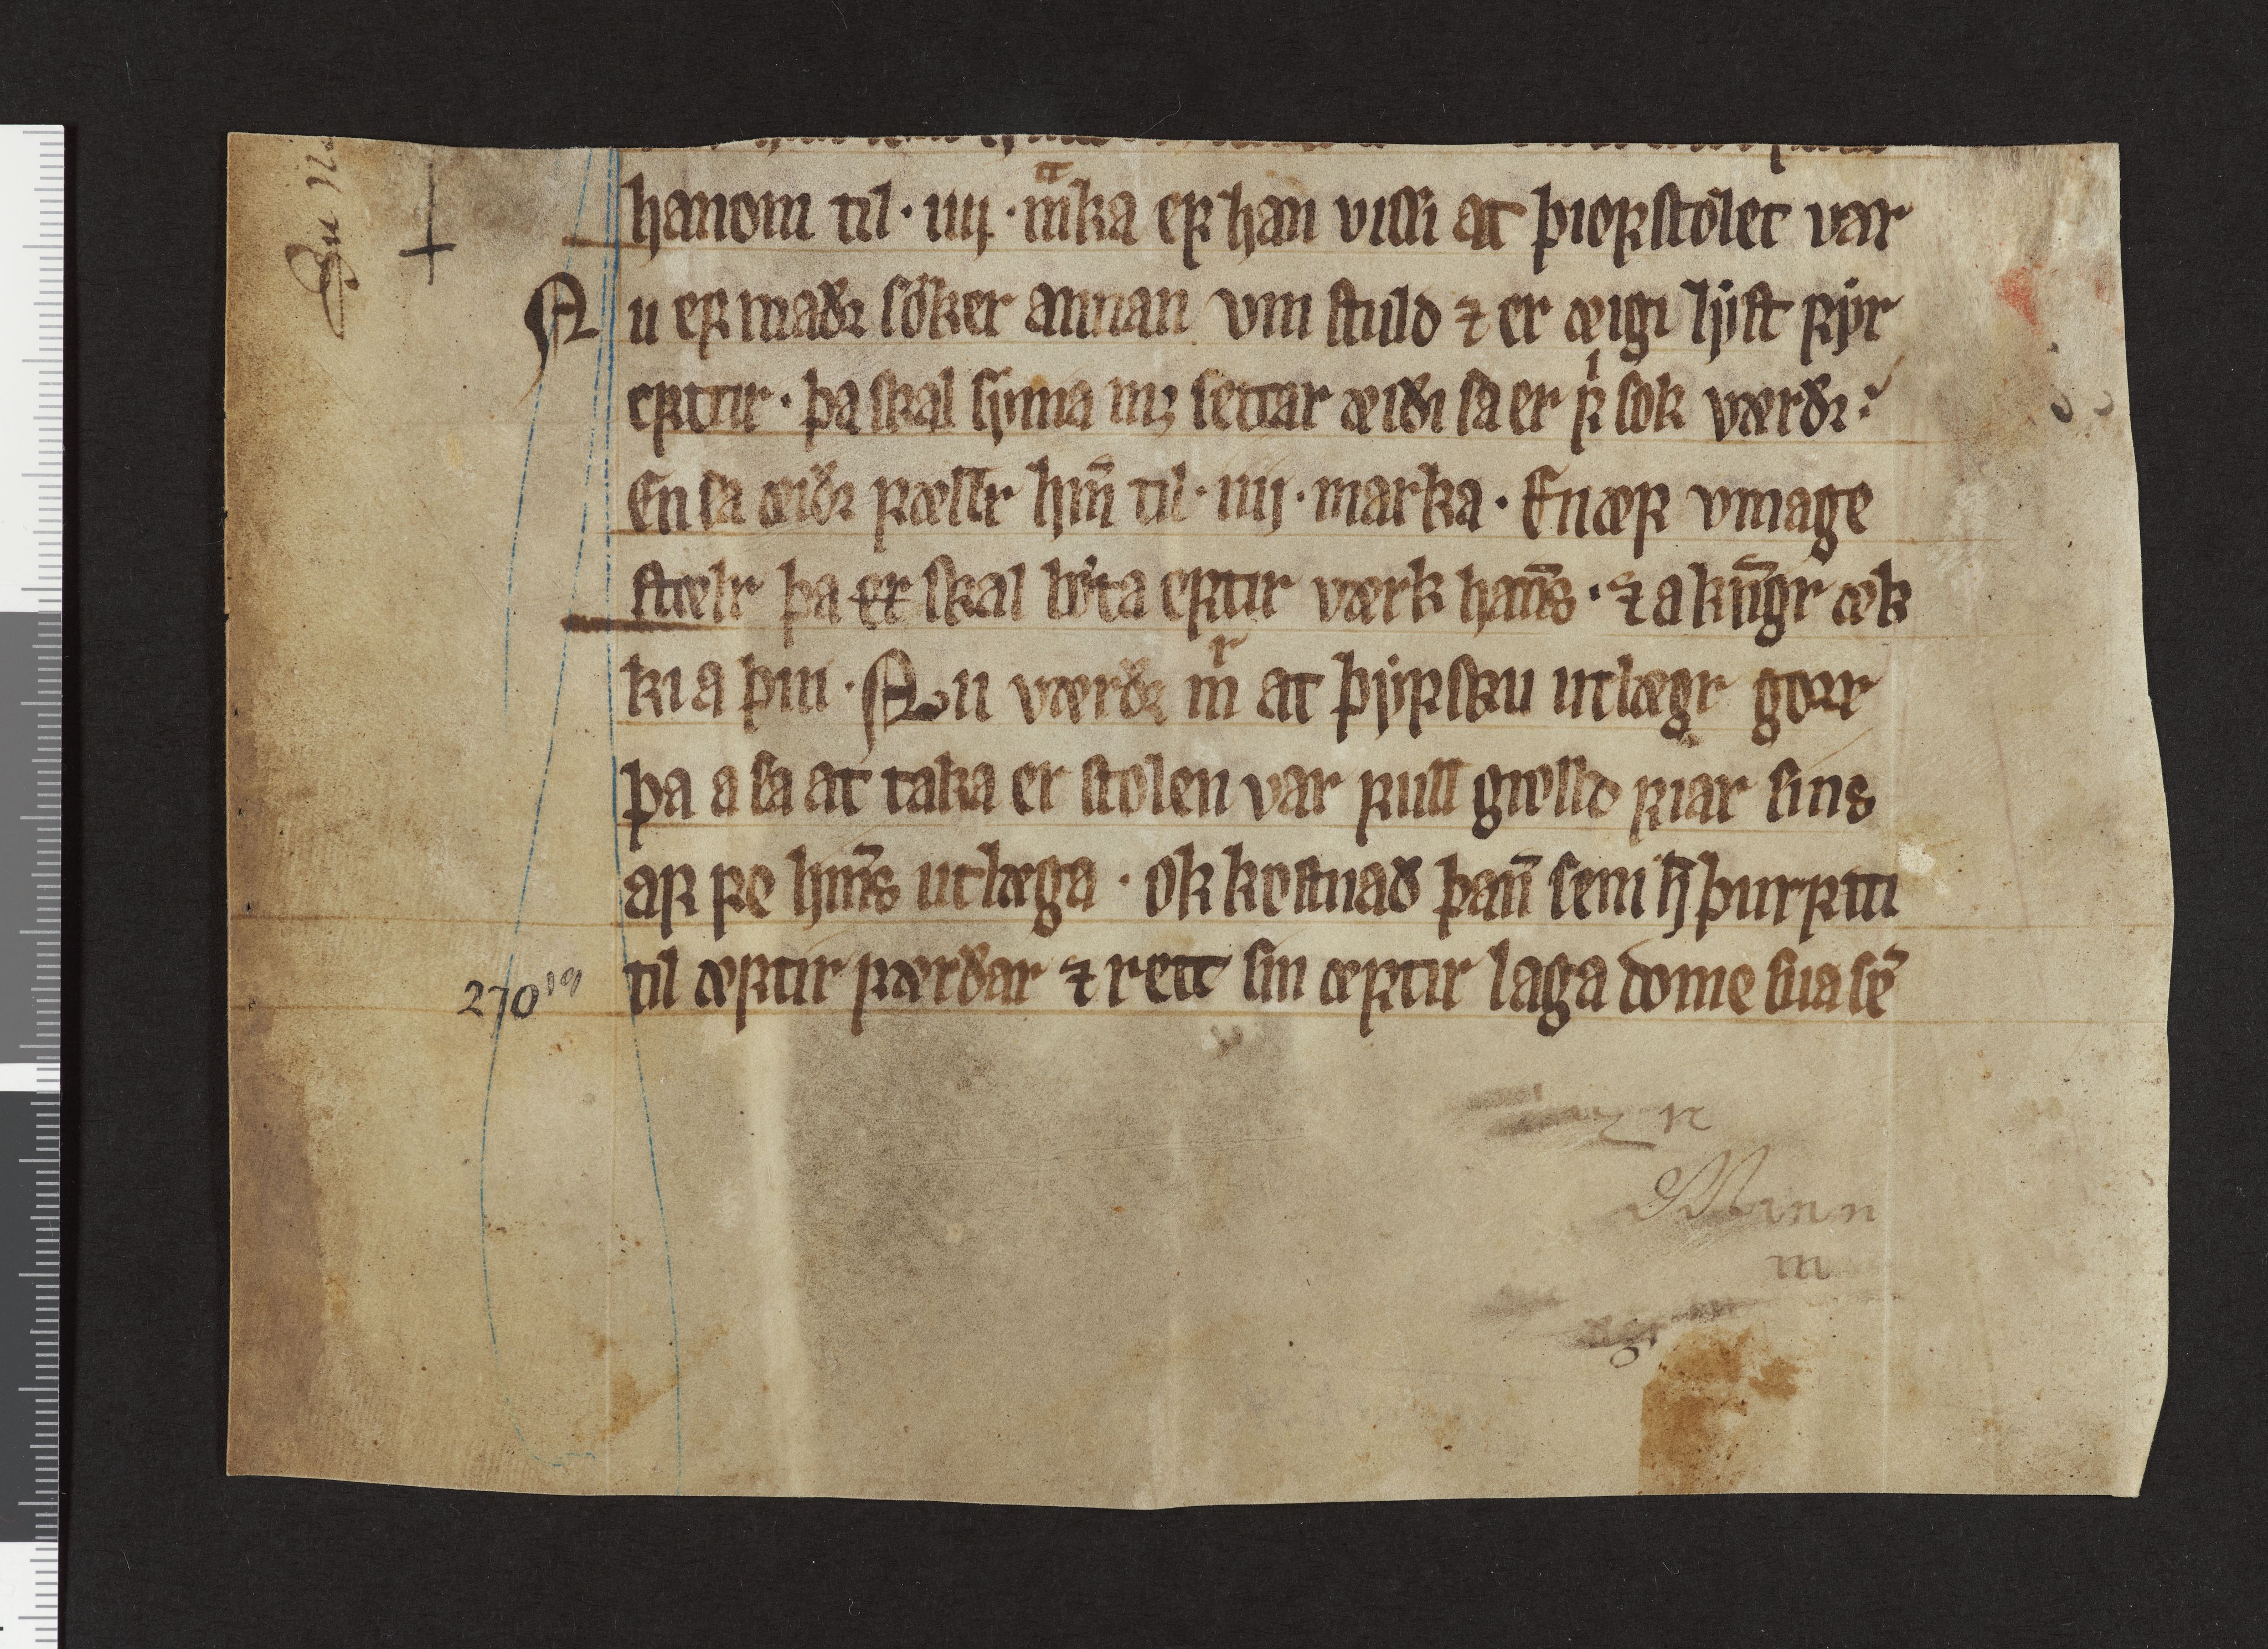 hanom til · iiij · mᵃka eꝼ han vissi at þioꝼstolet var
Nu eꝼ maðꝛ söker annan vm stuld ⁊ er æigi lÿst ꝼÿr
eꝼttir · þa skal sÿnia mꝫ settar æiði sa er ꝼⁱ sok værðꝛ ·
En sa æiðꝛ ꝼællr hm̅ til · iiij · marka · En æꝼ vmage
stælr þa er skal bǿta eꝼtir værk han̅s · ⁊ a kn̅gr æk
ki a þui · Nu værðꝛ mʳ at þÿꝼsku utlægr gorr
þa a sa at taka er stolen var ꝼull giolld ꝼiar sins
aꝼ ꝼe hm̅s utlæga · ok kostnað þan̅ sem h̅ þurꝼtti
til æꝼtir ꝼærðar ⁊ rett sin æꝼtir laga dome sua se̅
270
n
Minn
m